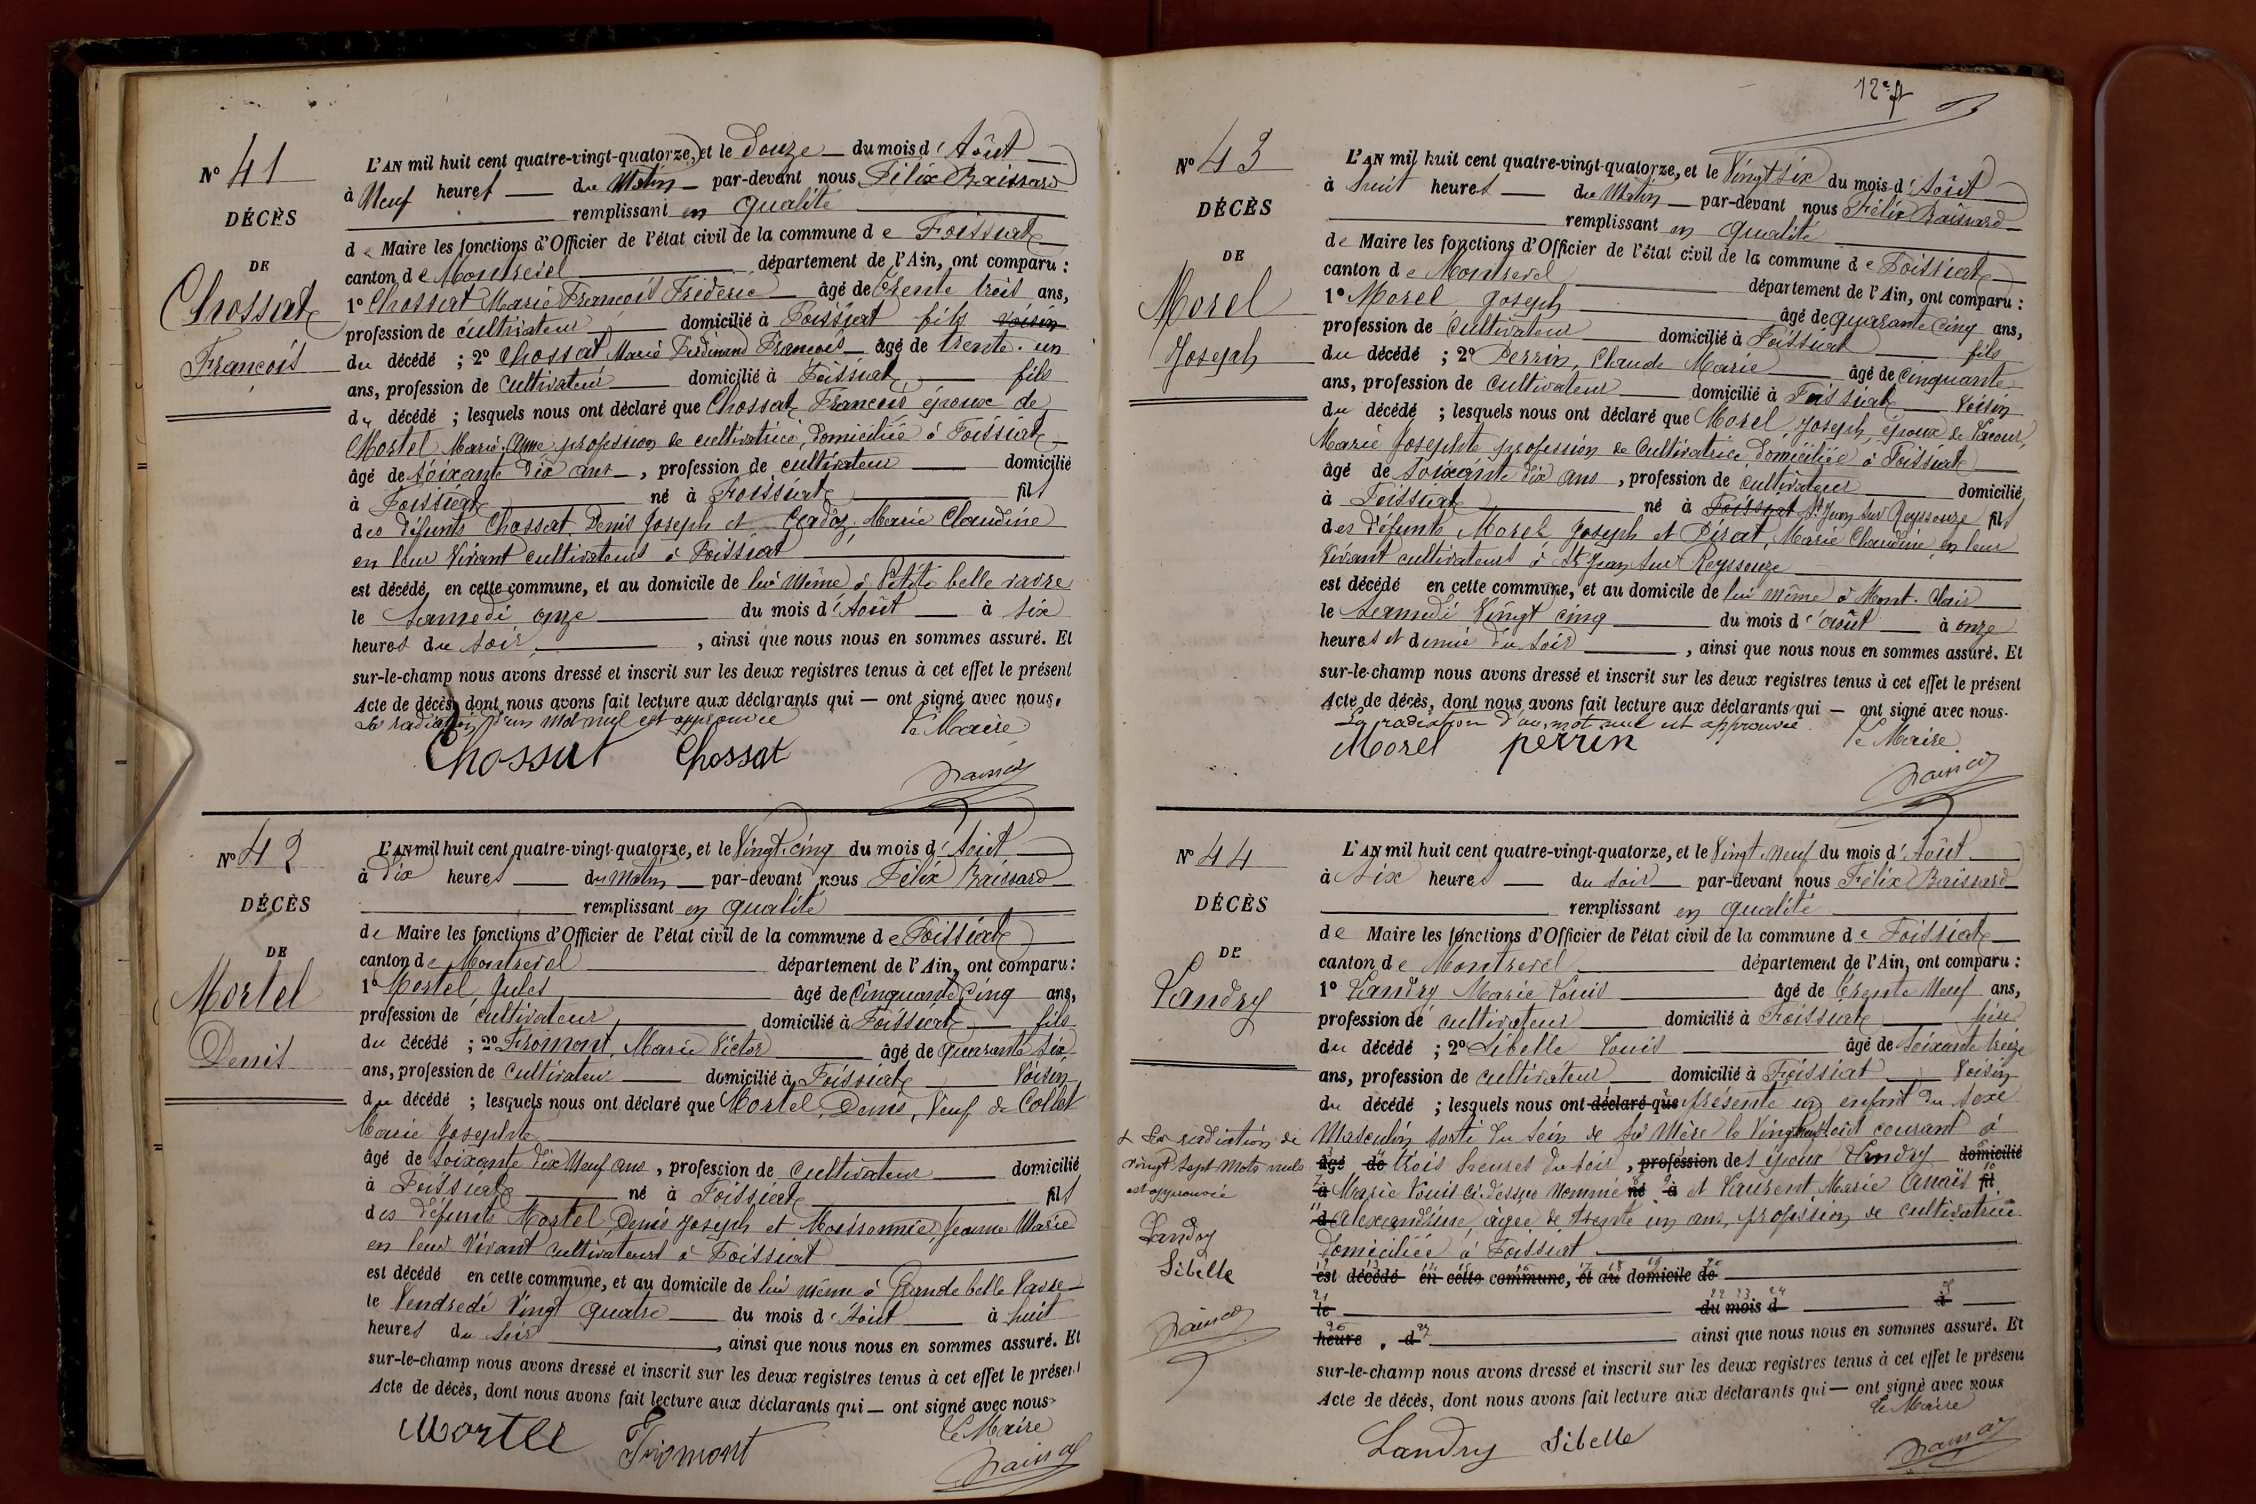 N° 41
DÉCÈS
DE
Chossat
François
L'AN mil huit cent quatre-vingt-quatorze, et le Douze du mois d'Août
à Neuf heures du Matin par-devant nous Félix Baissard
remplissant en qualité
de Maire les fonctions d'Officier de l'état civil de la commune de Foissiat
canton de Montrevel département de l'Ain, ont comparu :
1° Chossat Marie François Fréderic âgé de Trente trois ans,
profession de cultivateur domicilié à Foissiat fils voisin
du décédé ; 2° Chossat Marie Ferdinand François âgé de trente-un
ans, profession de cultivateur domicilié à Foissiat fils
du décédé ; lesquels nous ont déclaré que Chossat François époux de
Mortel Marie Anne profession de cultivatrice, domiciliée à Foissiat
âgé de soixante dix ans, profession de cultivateur domicilié
à Foissiat né à Foissiat fils
des défunts Chossat Denis Joseph et Marie Claudine
en leur vivant cultivateurs à Foissiat
est décédé en cette commune, et au domicile de lui même à Petite belle vavre
le Samedi onze du mois d'Août à six
heures du soir, ainsi que nous nous en sommes assuré. Et
sur-le-champ nous avons dressé et inscrit sur les deux registres tenus à cet effet le présent
Acte de décès, dont nous avons fait lecture aux déclarants qui — ont signé avec nous.
La radiation d'un mot nul est approuvée Le Maire
Chossat Chossat
N° 42
DÉCÈS
DE
Mortel
Denis
L'AN mil huit cent quatre-vingt-quatorze, et le Vingt-cinq du mois d'Août
à dix heures du Matin par-devant nous Félix Baissard
remplissant en qualité
de Maire les fonctions d'Officier de l'état civil de la commune de Foissiat
canton de Montrevel département de l'Ain, ont comparu :
1° Mortel Jules âgé de Cinquante Cinq ans,
profession de cultivateur domicilié à Foissiat fils
du décédé ; 2° Fromont, Marie Victor âgé de quarante six
ans, profession de cultivateur domicilié à Foissiat Voisin
du décédé ; lesquels nous ont déclaré que Mortel, Denis, Veuf de Collet
Marie Josephte
âgé de soixante dix Neuf ans, profession de cultivateur domicilié
à Foissiat né à Foissiat fils
des défunts Mortel, Denis Joseph et Moissonnier, Jeanne Marie
en leur Vivant cultivateurs à Foissiat
est décédé en cette commune, et au domicile de lui même à Grande belle Vavre
le Vendredi Vingt quatre du mois d'Août à huit
heures du Soir, ainsi que nous nous en sommes assuré. Et
sur-le-champ nous avons dressé et inscrit sur les deux registres tenus à cet effet le présent
Acte de décès, dont nous avons fait lecture aux déclarants qui — ont signé avec nous
Le Maire
Mortel Fromont
12e ft
N° 43
DÉCÈS
DE
Morel
Joseph
L'AN mil huit cent quatre-vingt-quatorze, et le Vingt six du mois d'Août
à huit heures du Matin par-devant nous Félix Baissard
remplissant en qualité
de Maire les fonctions d'Officier de l'état civil de la commune de Foissiat
canton de Montrevel département de l'Ain, ont comparu :
1° Morel Joseph âgé de quarante cinq ans,
profession de cultivateur domicilié à Foissiat fils
du décédé ; 2° Perrin, Claude Marie âgé de cinquante
ans, profession de cultivateur domicilié à Foissiat Voisin
du décédé ; lesquels nous ont déclaré que Morel Joseph, époux de Lacour,
Marie Josephte profession de Cultivatrice, Domiciliée à Foissiat
âgé de soixante dix ans, profession de cultivateur domicilié
à Foissiat né à Foissiat St Jean sur Reyssouze fils
des défunts Morel Joseph et Pirat, Marie Claudine, en leur
Vivant cultivateurs à St Jean sur Reyssouze
est décédé en cette commune, et au domicile de lui même à Mont-Clair
le Samedi Vingt cinq du mois d'août à onze
heures et demie du soir, ainsi que nous nous en sommes assuré. Et
sur-le-champ nous avons dressé et inscrit sur les deux registres tenus à cet effet le présent
Acte de décès, dont nous avons fait lecture aux déclarants qui — ont signé avec nous.
La radiation d'un mot nul est approuvée. Le Maire
Morel perrin
N° 44
DÉCÈS
DE
Landry
L'AN mil huit cent quatre-vingt-quatorze, et le Vingt Neuf du mois d'Août
à Six heures du soir par-devant nous Félix Baissard
remplissant en qualité
de Maire les fonctions d'Officier de l'état civil de la commune de Foissiat
canton de Montrevel département de l'Ain, ont comparu :
1° Landry Marie Louis âgé de Trente Neuf ans,
profession de cultivateur domicilié à Foissiat père
du décédé ; 2° Libelle Louis âgé de soixante treize
ans, profession de cultivateur domicilié à Foissiat Voisin
du décédé ; lesquels nous ont déclaré que présenté un enfant du sexe
Masculin sorti du sein de sa Mère le Vingt huit courant à
âgé de trois heures du soir, profession des époux Landry domicilié
à Marie Louis ci-dessus Nommé né à et Laurent Marie Anaïs fil
d Alexandrine, âgée de Trente un ans, profession de cultivatrice
Domiciliée à Foissiat
est décédé en cette commune, et au domicile de
le du mois d à
heure, d ainsi que nous nous en sommes assuré. Et
sur-le-champ nous avons dressé et inscrit sur les deux registres tenus à cet effet le présent
Acte de décès, dont nous avons fait lecture aux déclarants qui — ont signé avec nous
Le Maire
Landry Libelle
La radiation de
vingt sept mots nuls
est approuvée
Landry
Libelle